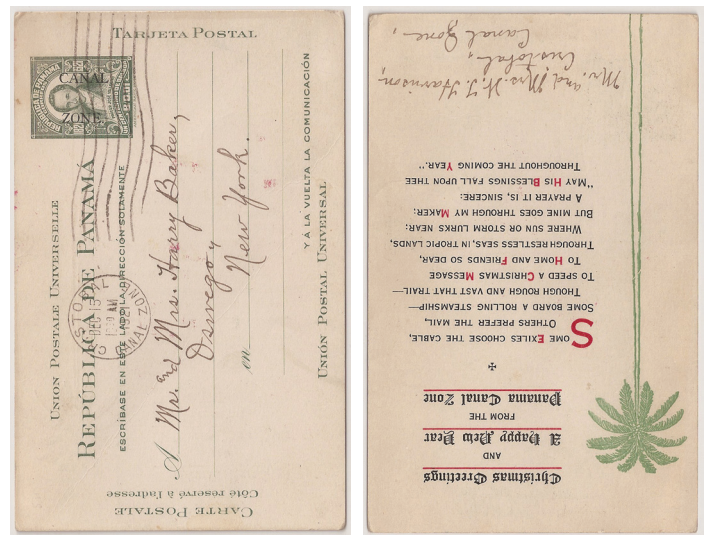 TARJETA POSTAL
REPÚBLICA DE PANAMÁ
CANAL
ZONE.
UNION POSTALE UNIVERSELLE
REPÚBLICA DE PANAMÁ
ESCRÍBASE EN ESTE LADO LA DIRECCIÓN SOLAMENTE
CRISTOBAL
DEC 15
AM
CANAL ZONE
A Mr. and Mrs. Harry Baker,
Oswego,
en New York.
Y Á LA VUELTA LA COMUNICACIÓN
UNIÓN POSTAL UNIVERSAL
CARTE POSTALE
Côté reservé à l'adresse
Christmas Greetings
AND
A Happy New Year
FROM THE
Panama Canal Zone
SOME EXILES CHOOSE THE CABLE,
OTHERS PREFER THE MAIL,
SOME BOARD A ROLLING STEAMSHIP—
THOUGH ROUGH AND VAST THAT TRAIL—
TO SPEED A CHRISTMAS MESSAGE
TO HOME AND FRIENDS SO DEAR,
THROUGH RESTLESS SEAS, IN TROPIC LANDS,
WHERE SUN OR STORM LURKS NEAR:
BUT MINE GOES THROUGH MY MAKER:
A PRAYER IT IS, SINCERE:
"MAY HIS BLESSINGS FALL UPON THEE
THROUGHOUT THE COMING YEAR."
Mr. and Mrs. H. I. Harrison,
Cristobal,
Canal Zone.